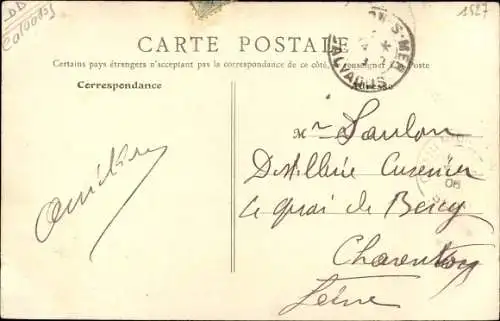 DD
Calvados
1527
CARTE POSTALE
Certains pays étrangers n'acceptent pas la correspondance de ce côté, se renseigner à la Poste
Correspondance
Adresse
S-MER
CALVADOS
Mr Saulon
Distillerie Cusenier
le quai de Bercy
Charenton
Seine
Amitiés
06